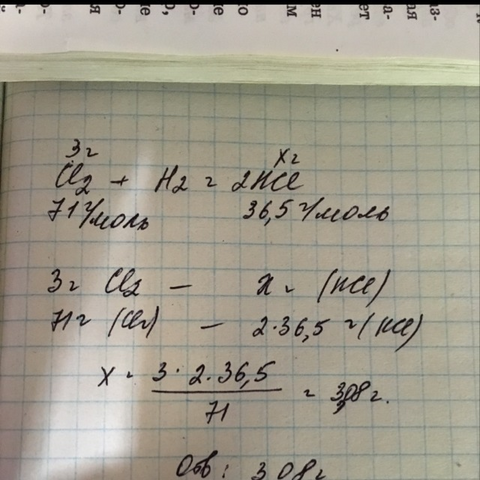 3г хг
Cl2 + H2 = 2HCl
71 г/моль 36,5 г/моль
3г Cl2 — xг (HCl)
71г (Cl2) — 2·36,5 г (HCl)
X = 3·2·36,5 / 71 = 3,08 г.
Отв: 3,08 г